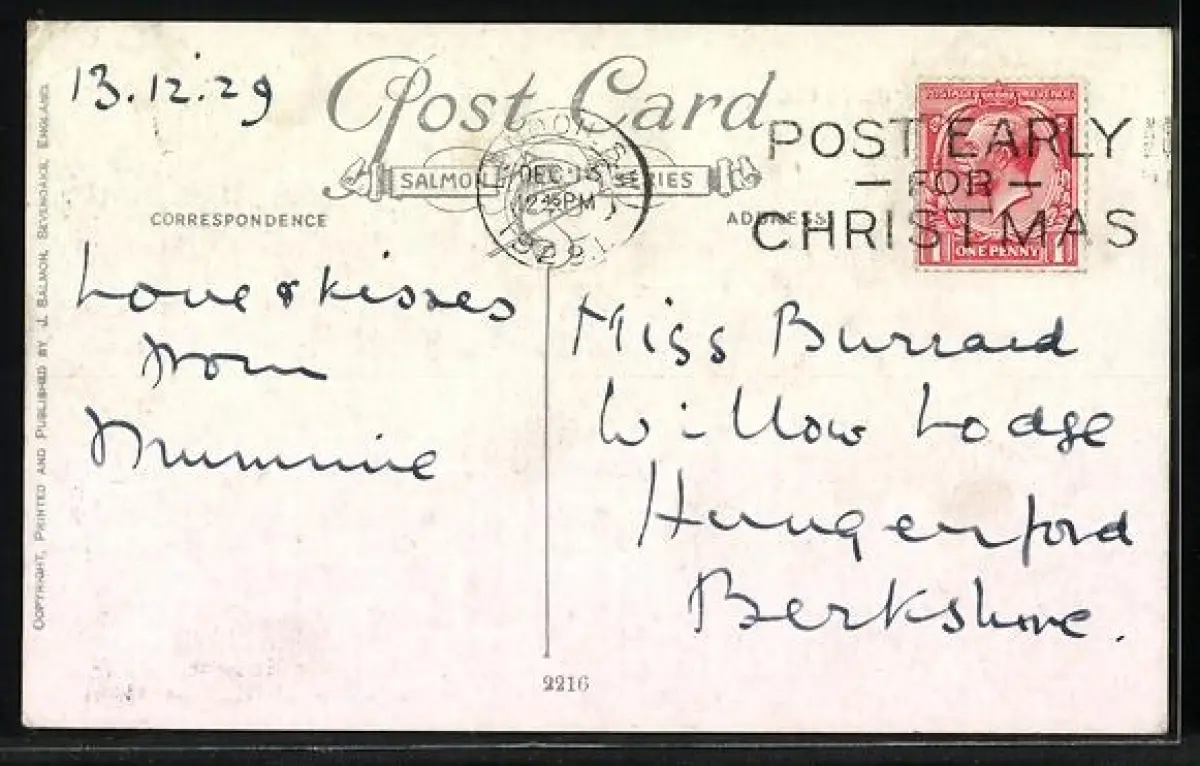 13.12.29
Post Card
SALMON SERIES
DEC 13
12 45 PM
1929
POST EARLY
— FOR —
CHRISTMAS
POSTAGE REVENUE
1 ONE PENNY 1
CORRESPONDENCE
ADDRESS
Love & kisses
from
Mummie
Miss Burrard
Willow Lodge
Hungerford
Berkshire.
2216
COPYRIGHT, PRINTED AND PUBLISHED BY J. SALMON, SEVENOAKS, ENGLAND.